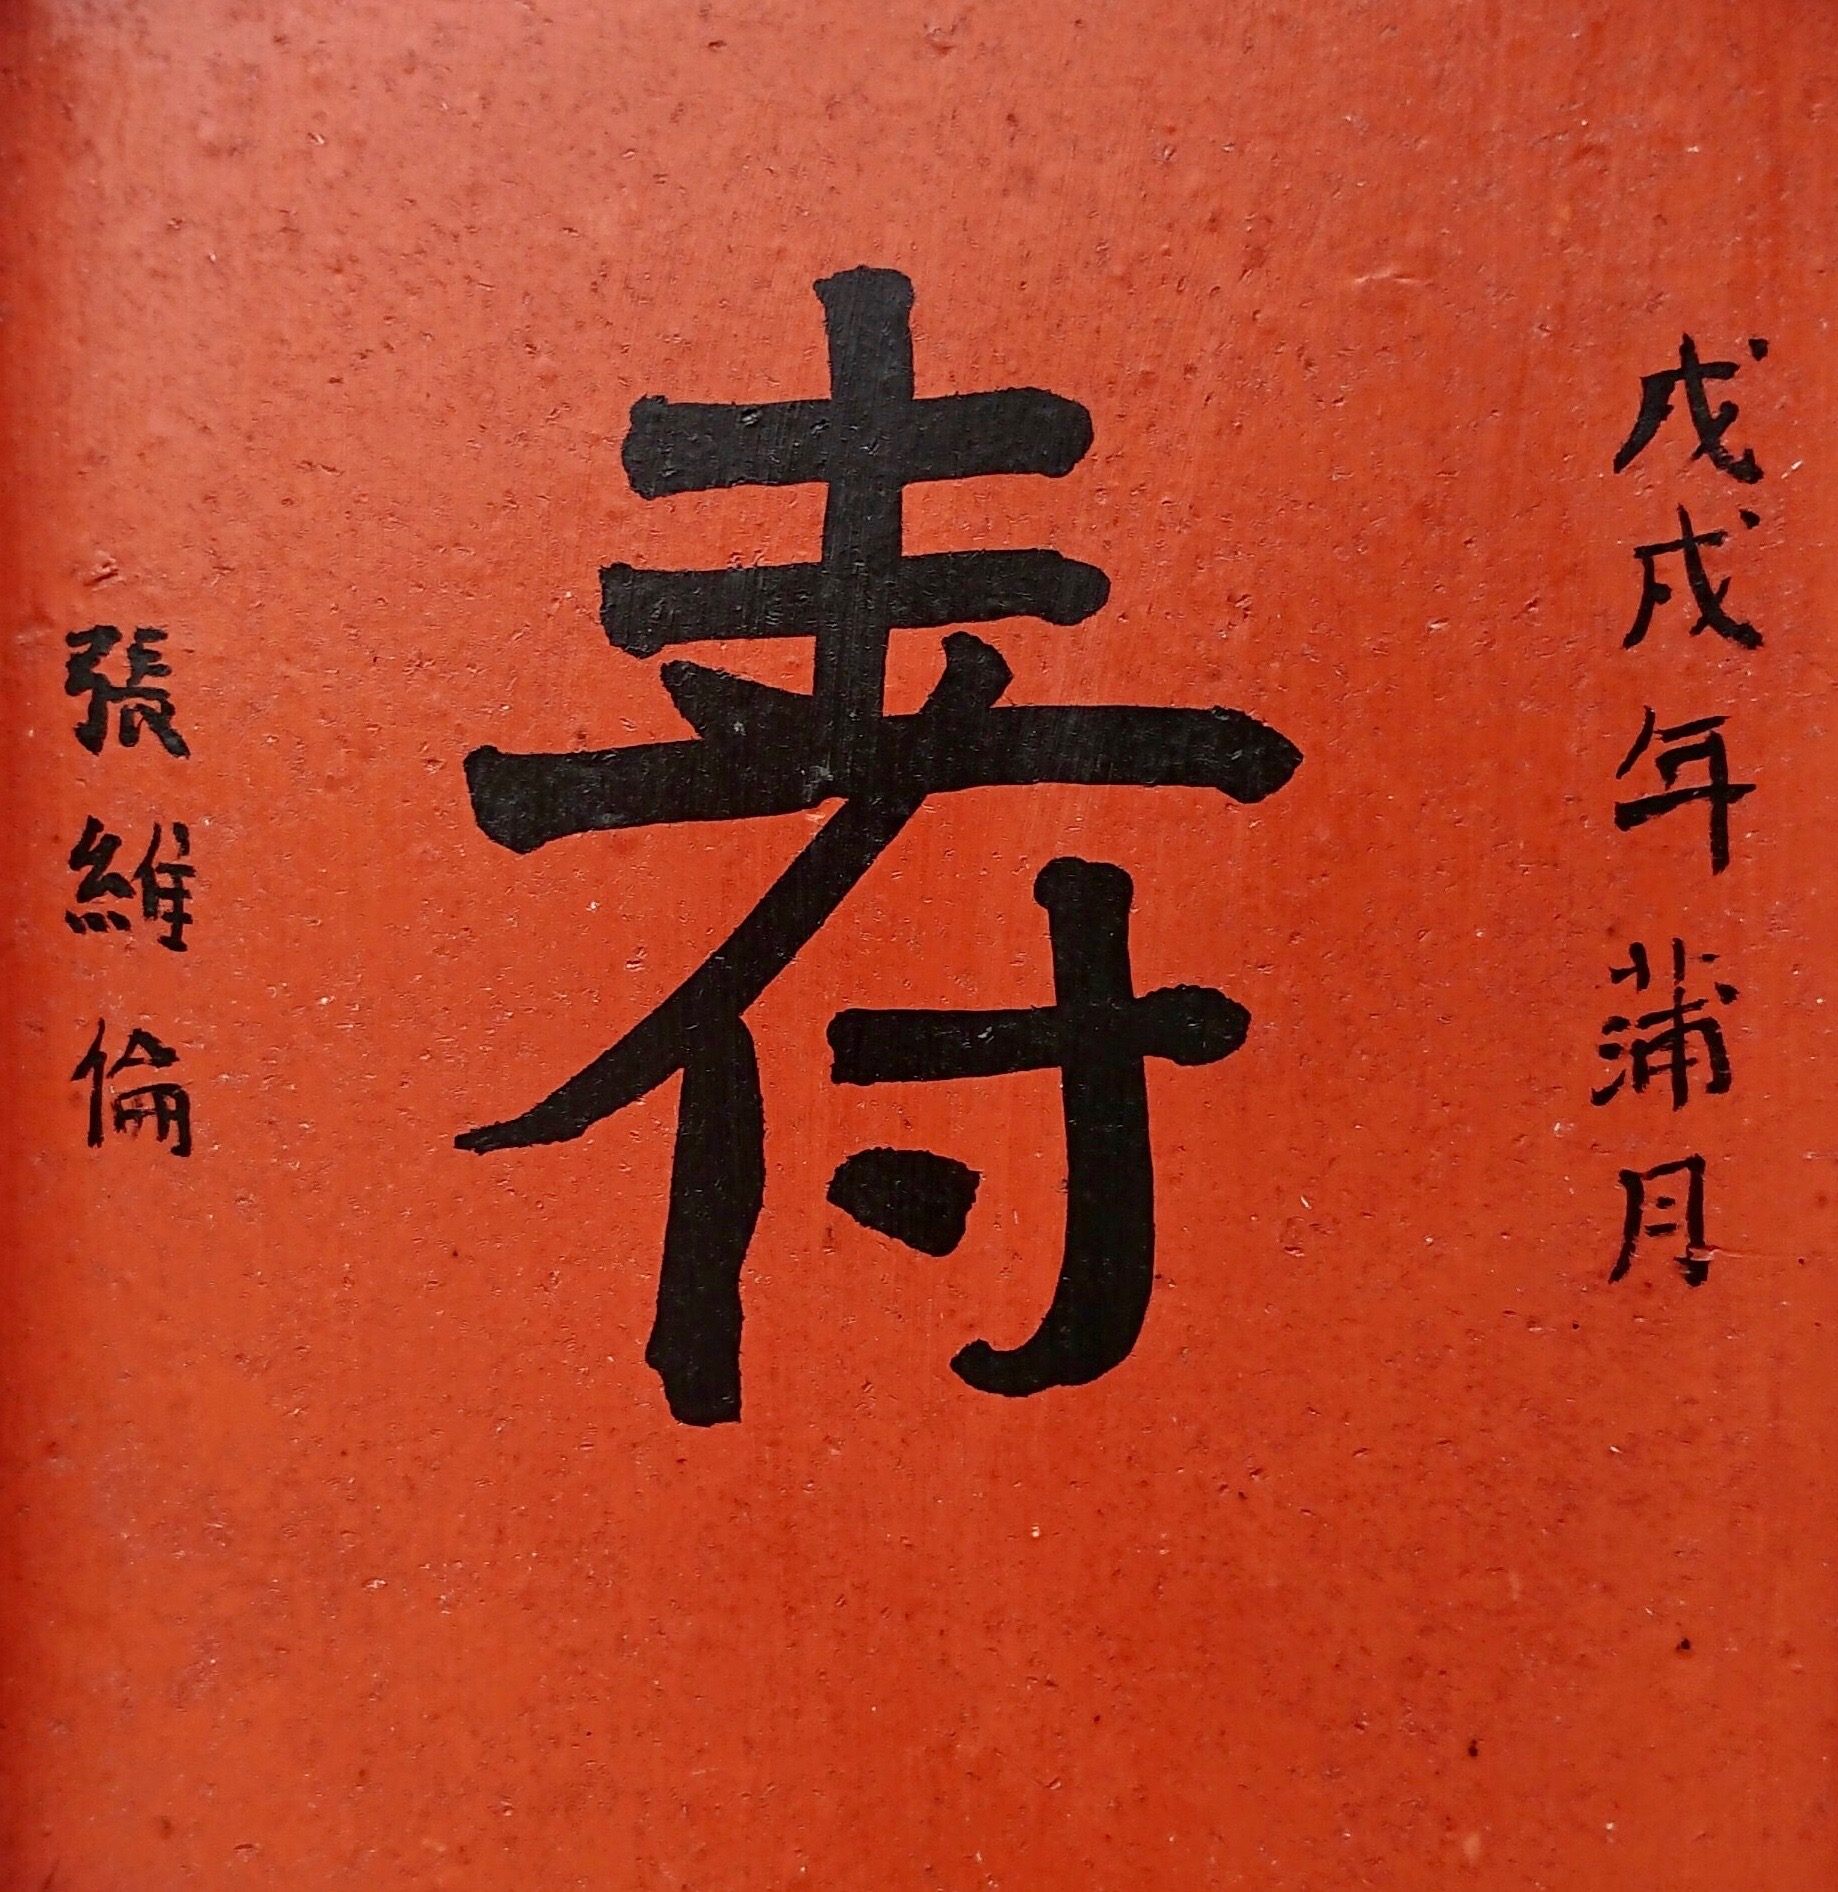 戊戌年蒲月
寿
張維倫